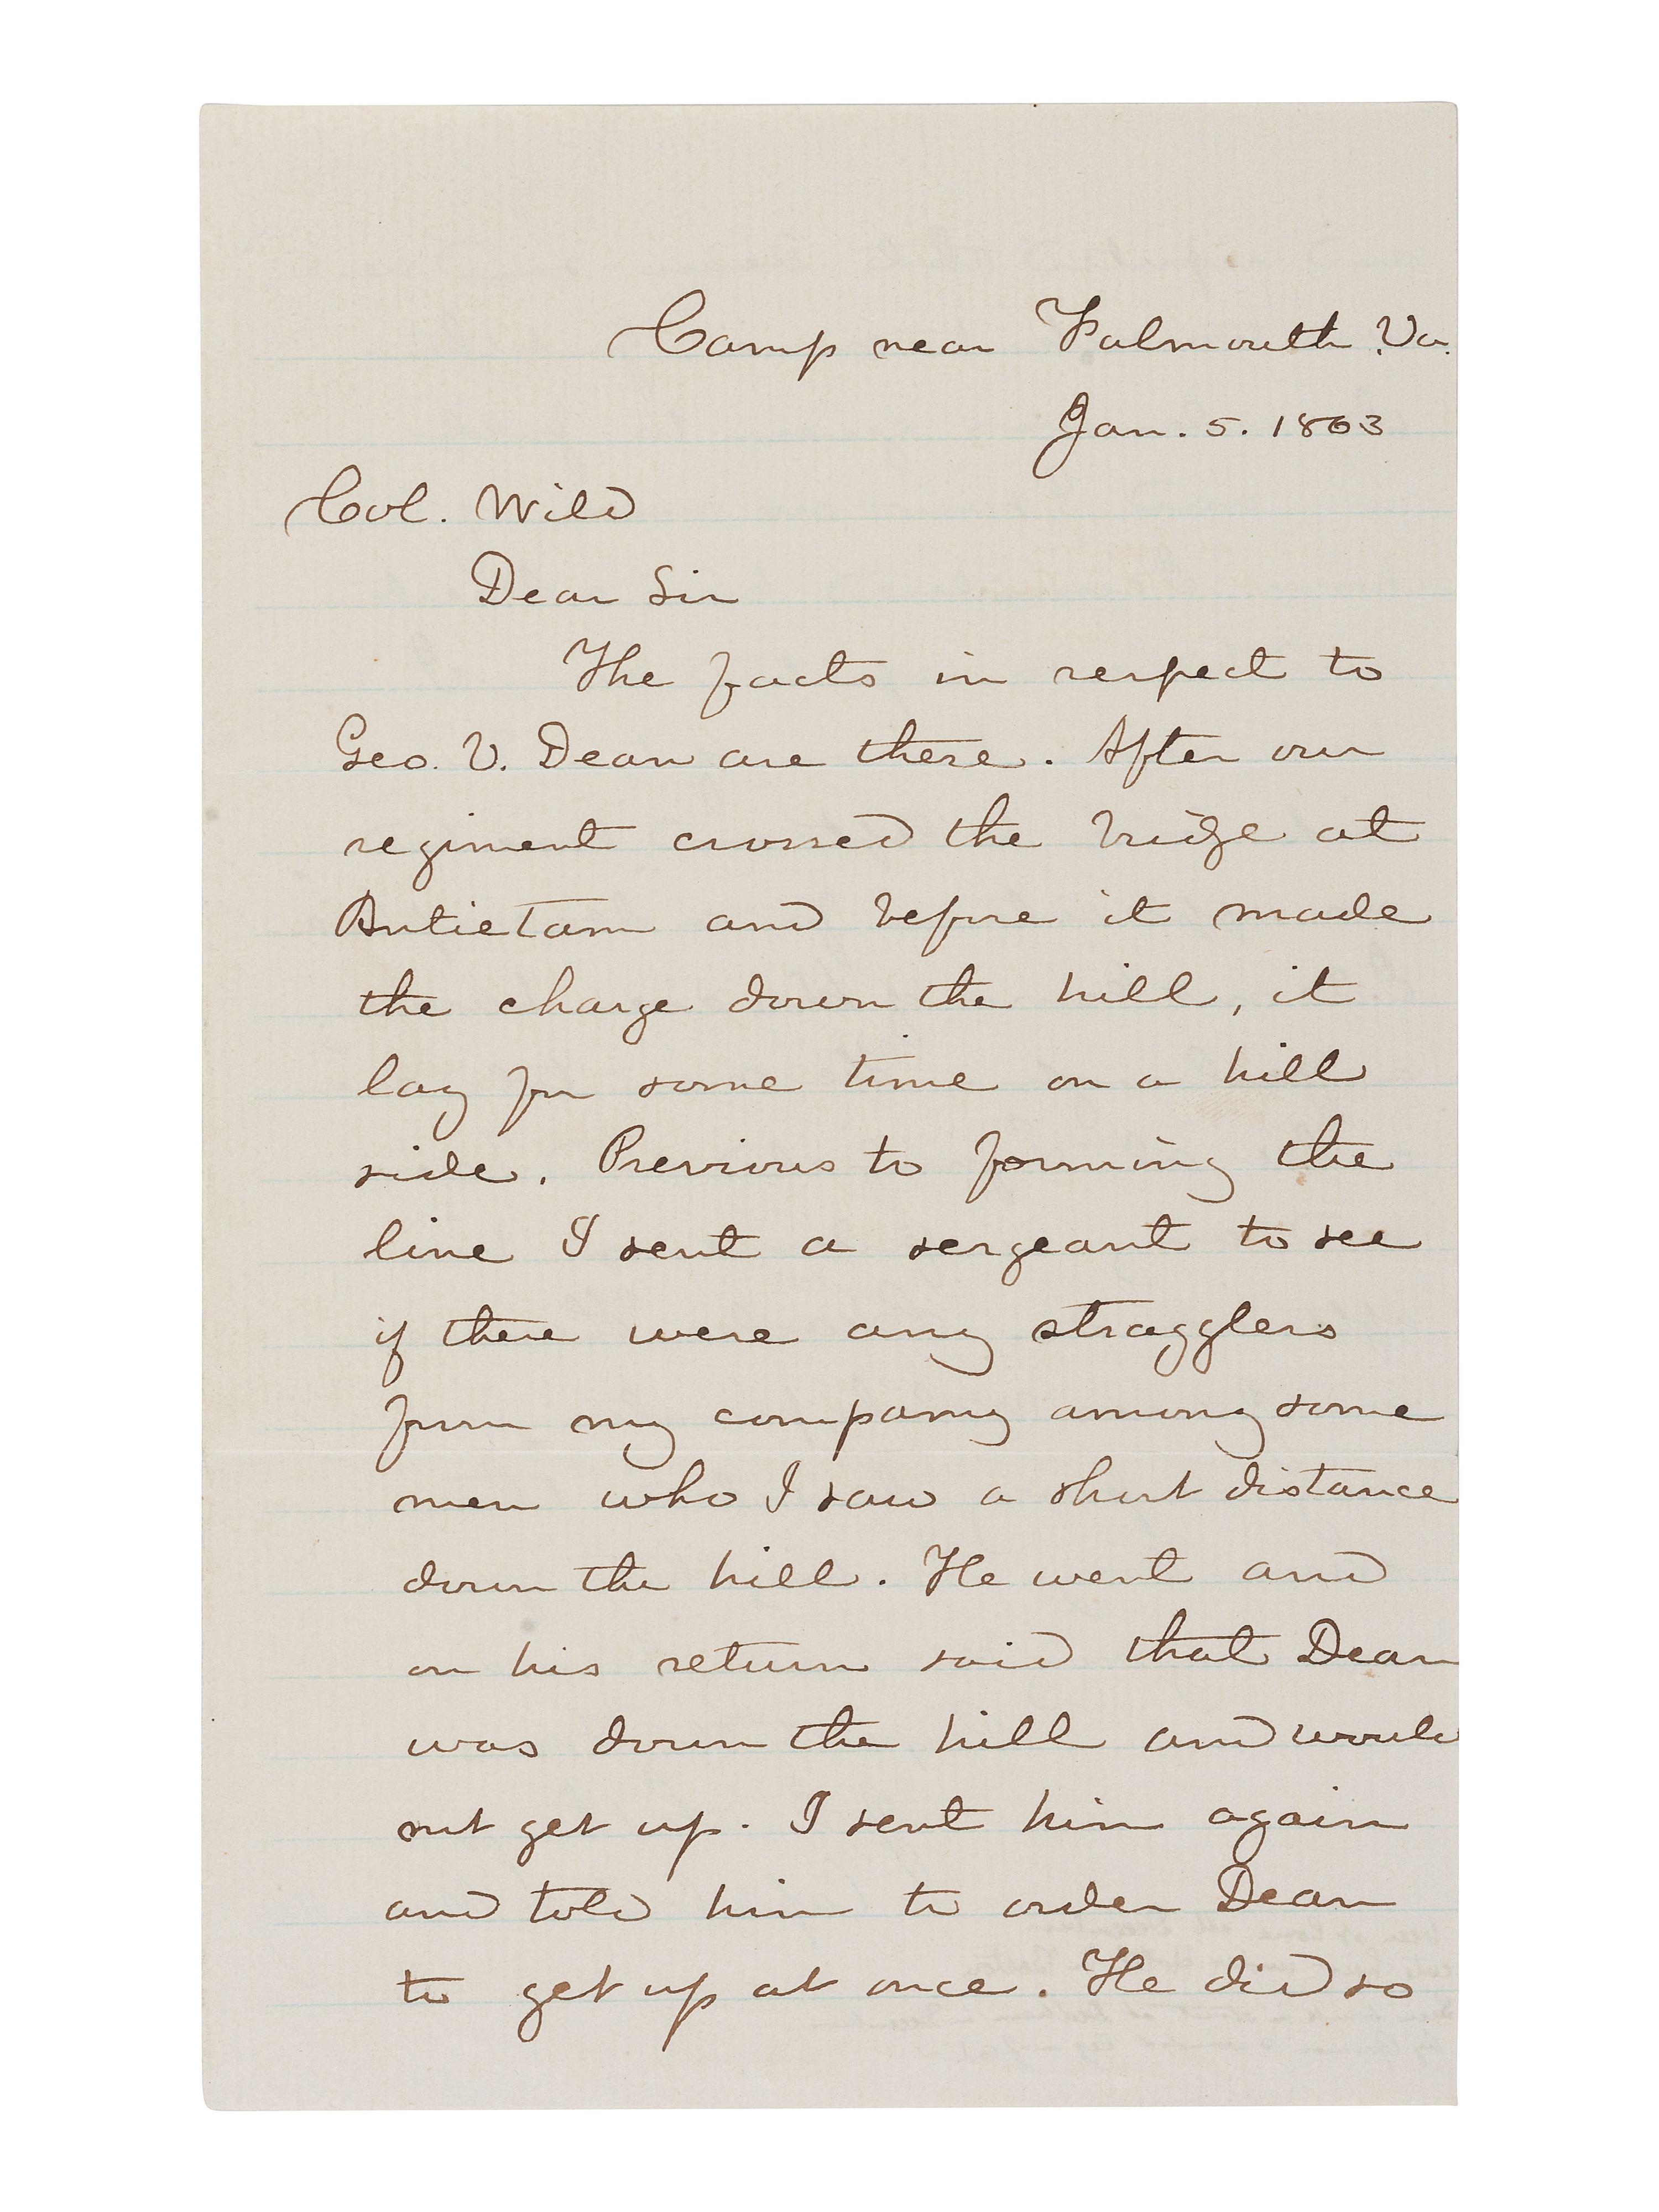 Camp near Falmouth Va.
Jan. 5. 1863
Col. Wild
Dear Sir
The facts in respect to
Geo. V. Dean are these. After our
regiment crossed the bridge at
Antietam and before it made
the charge down the hill, it
lay for some time on a hill
side. Previous to forming the
line I sent a sergeant to see
if there were any stragglers
from my company among some
men who I saw a short distance
down the hill. He went and
on his return said that Dean
was down the hill and would
not get up. I sent him again
and told him to order Dean
to get up at once. He did so